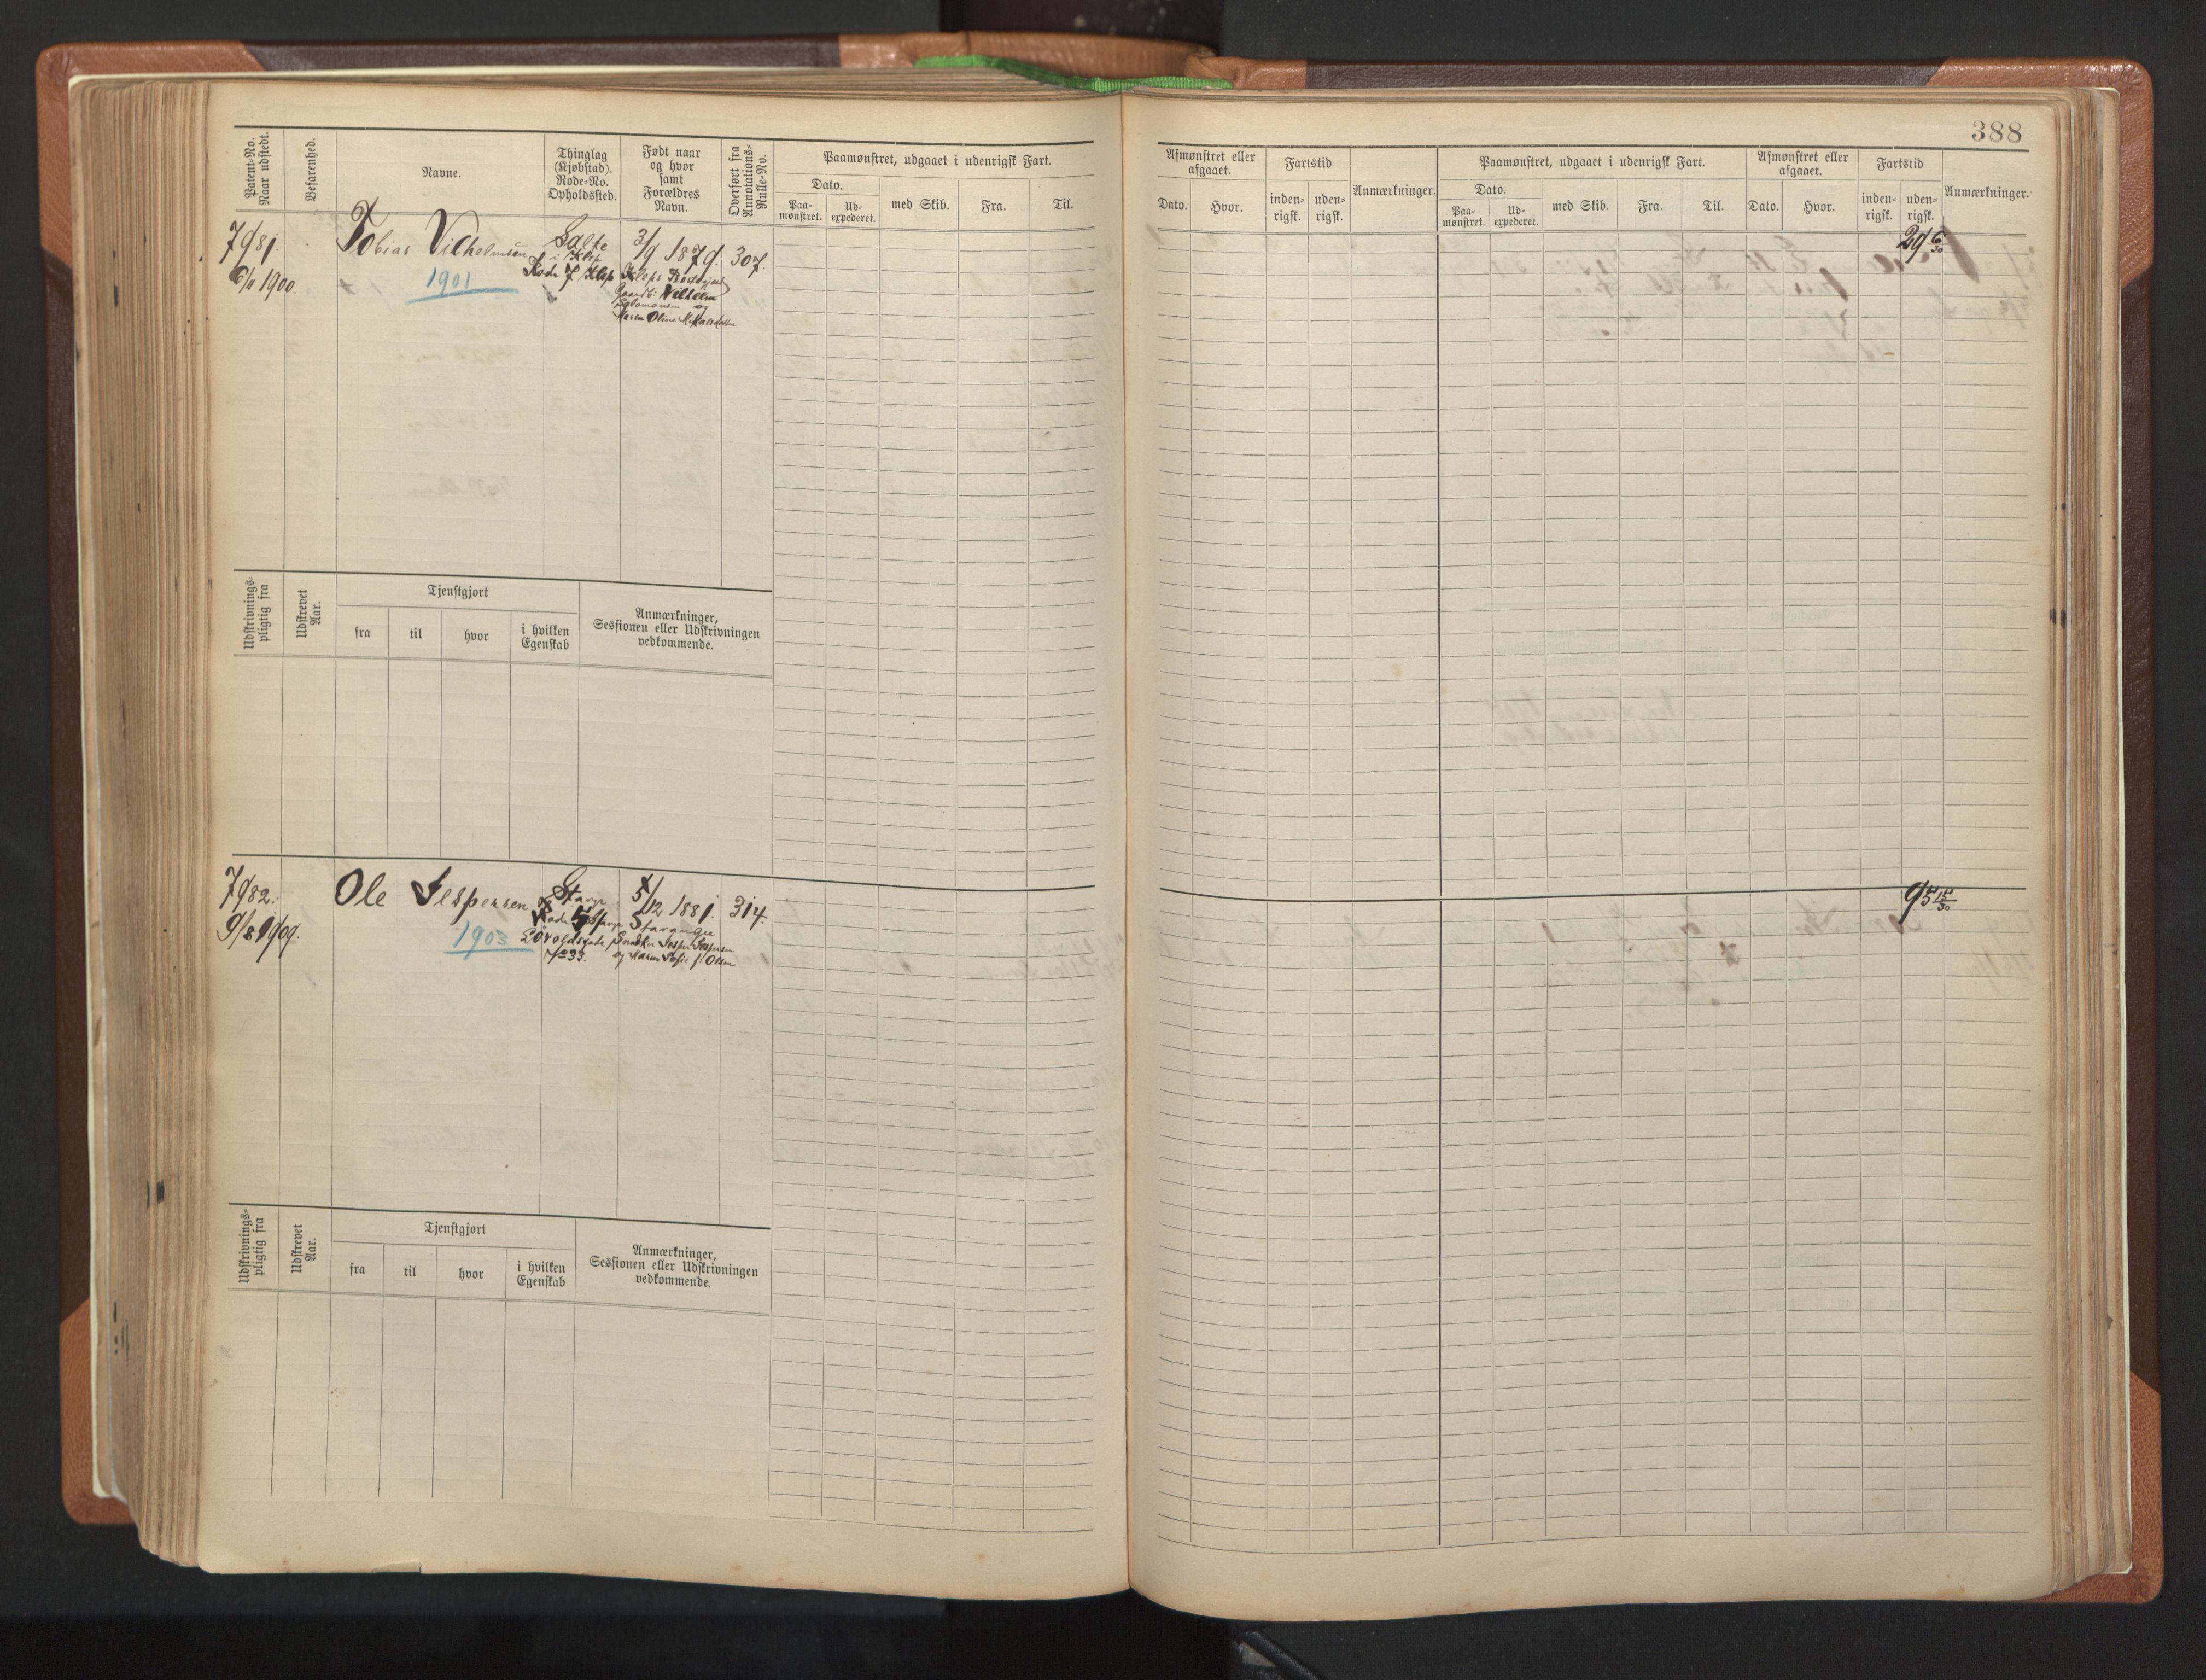 388
Patent-No. Naar udstedt.
Befarenhed.
Navne.
Thinglag (Kjøbstad). Rode-No. Opholdssted.
Født naar og hvor samt Forældres Navn.
Overført fra Annotations-Rulle-No.
Paamønstret, udgaaet i udenrigsk Fart.
Dato.
Paa-mønstret.
Ud-expederet.
med Skib.
Fra.
Til.
Afmønstret eller afgaaet.
Dato.
Hvor.
Fartstid
inden-rigsk.
uden-rigsk.
Anmærkninger.
Paamønstret, udgaaet i udenrigsk Fart.
Dato.
Paa-mønstret.
Ud-expederet.
med Skib.
Fra.
Til.
Afmønstret eller afgaaet.
Dato.
Hvor.
Fartstid
inden-rigsk.
uden-rigsk.
Anmærkninger.
7981.
6/11 1900.
Tobias Vilhelmsen
1901
Salte
i Klep
Rode 7 Klep
3/9 1879.
Kleps Præstegjeld
Gaardb. Vilhelm
Salomonsen og
Maren Oline
307.
29 6/30
Udskrivnings-pligtig fra
Udskrevet Aar.
Tjenstgjort
fra
til
hvor
i hvilken Egenskab
Anmærkninger, Sessionen eller Udskrivningen vedkommende.
7982.
9/8 1909.
Ole Jespersen
1903
Stavgr
Rode 5 Stavgr
No 33.
5/12 1881.
Stavanger
Snedker Jesper Jespersen
og Maren Sofie f. Olsen
314.
95 15/30
Udskrivnings-pligtig fra
Udskrevet Aar.
Tjenstgjort
fra
til
hvor
i hvilken Egenskab
Anmærkninger, Sessionen eller Udskrivningen vedkommende.